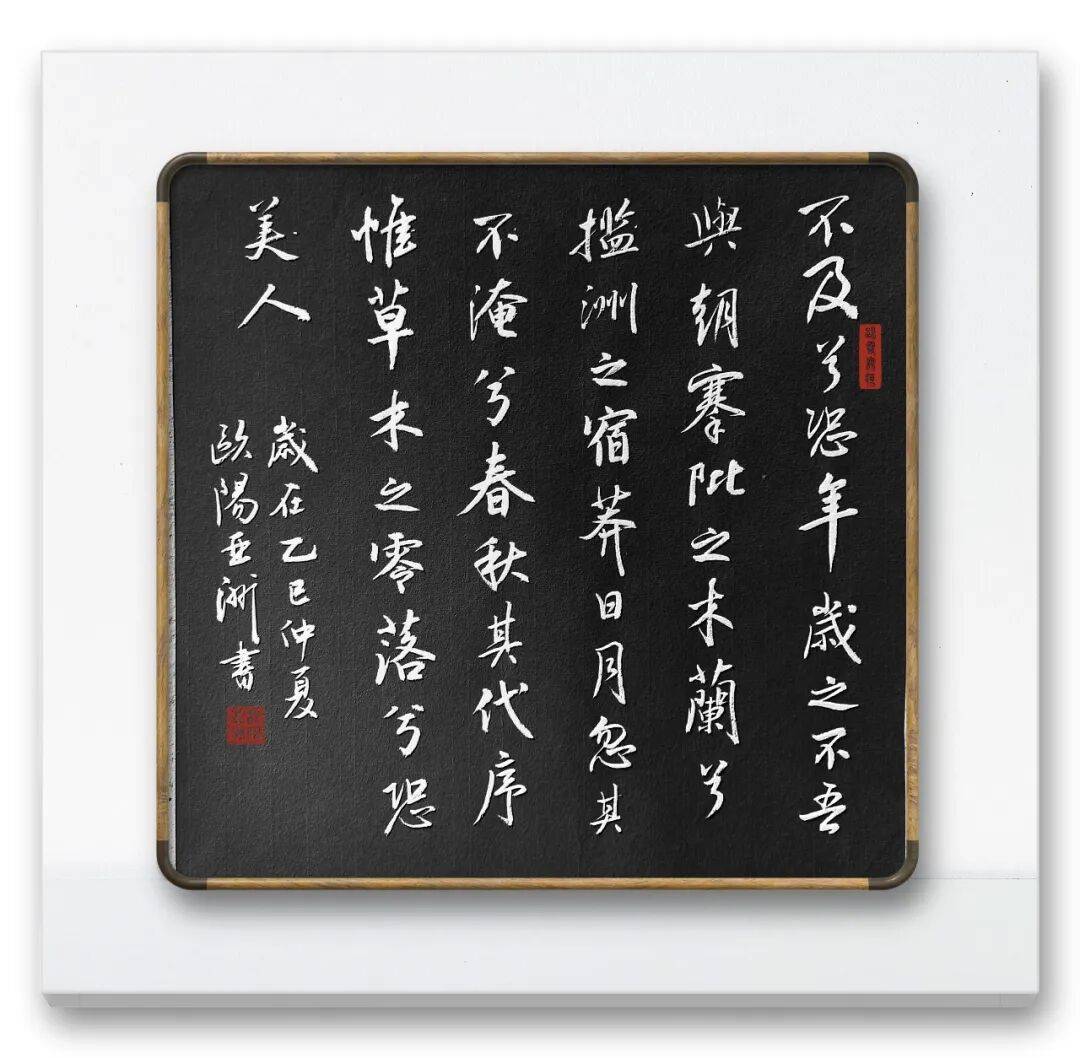 不及兮恐年歲之不吾
與朝搴阰之木蘭兮
㩜洲之宿莽日月忽其
不淹兮春秋其代序
惟草木之零落兮恐
美人
歲在乙巳仲夏
歐陽亞洲書